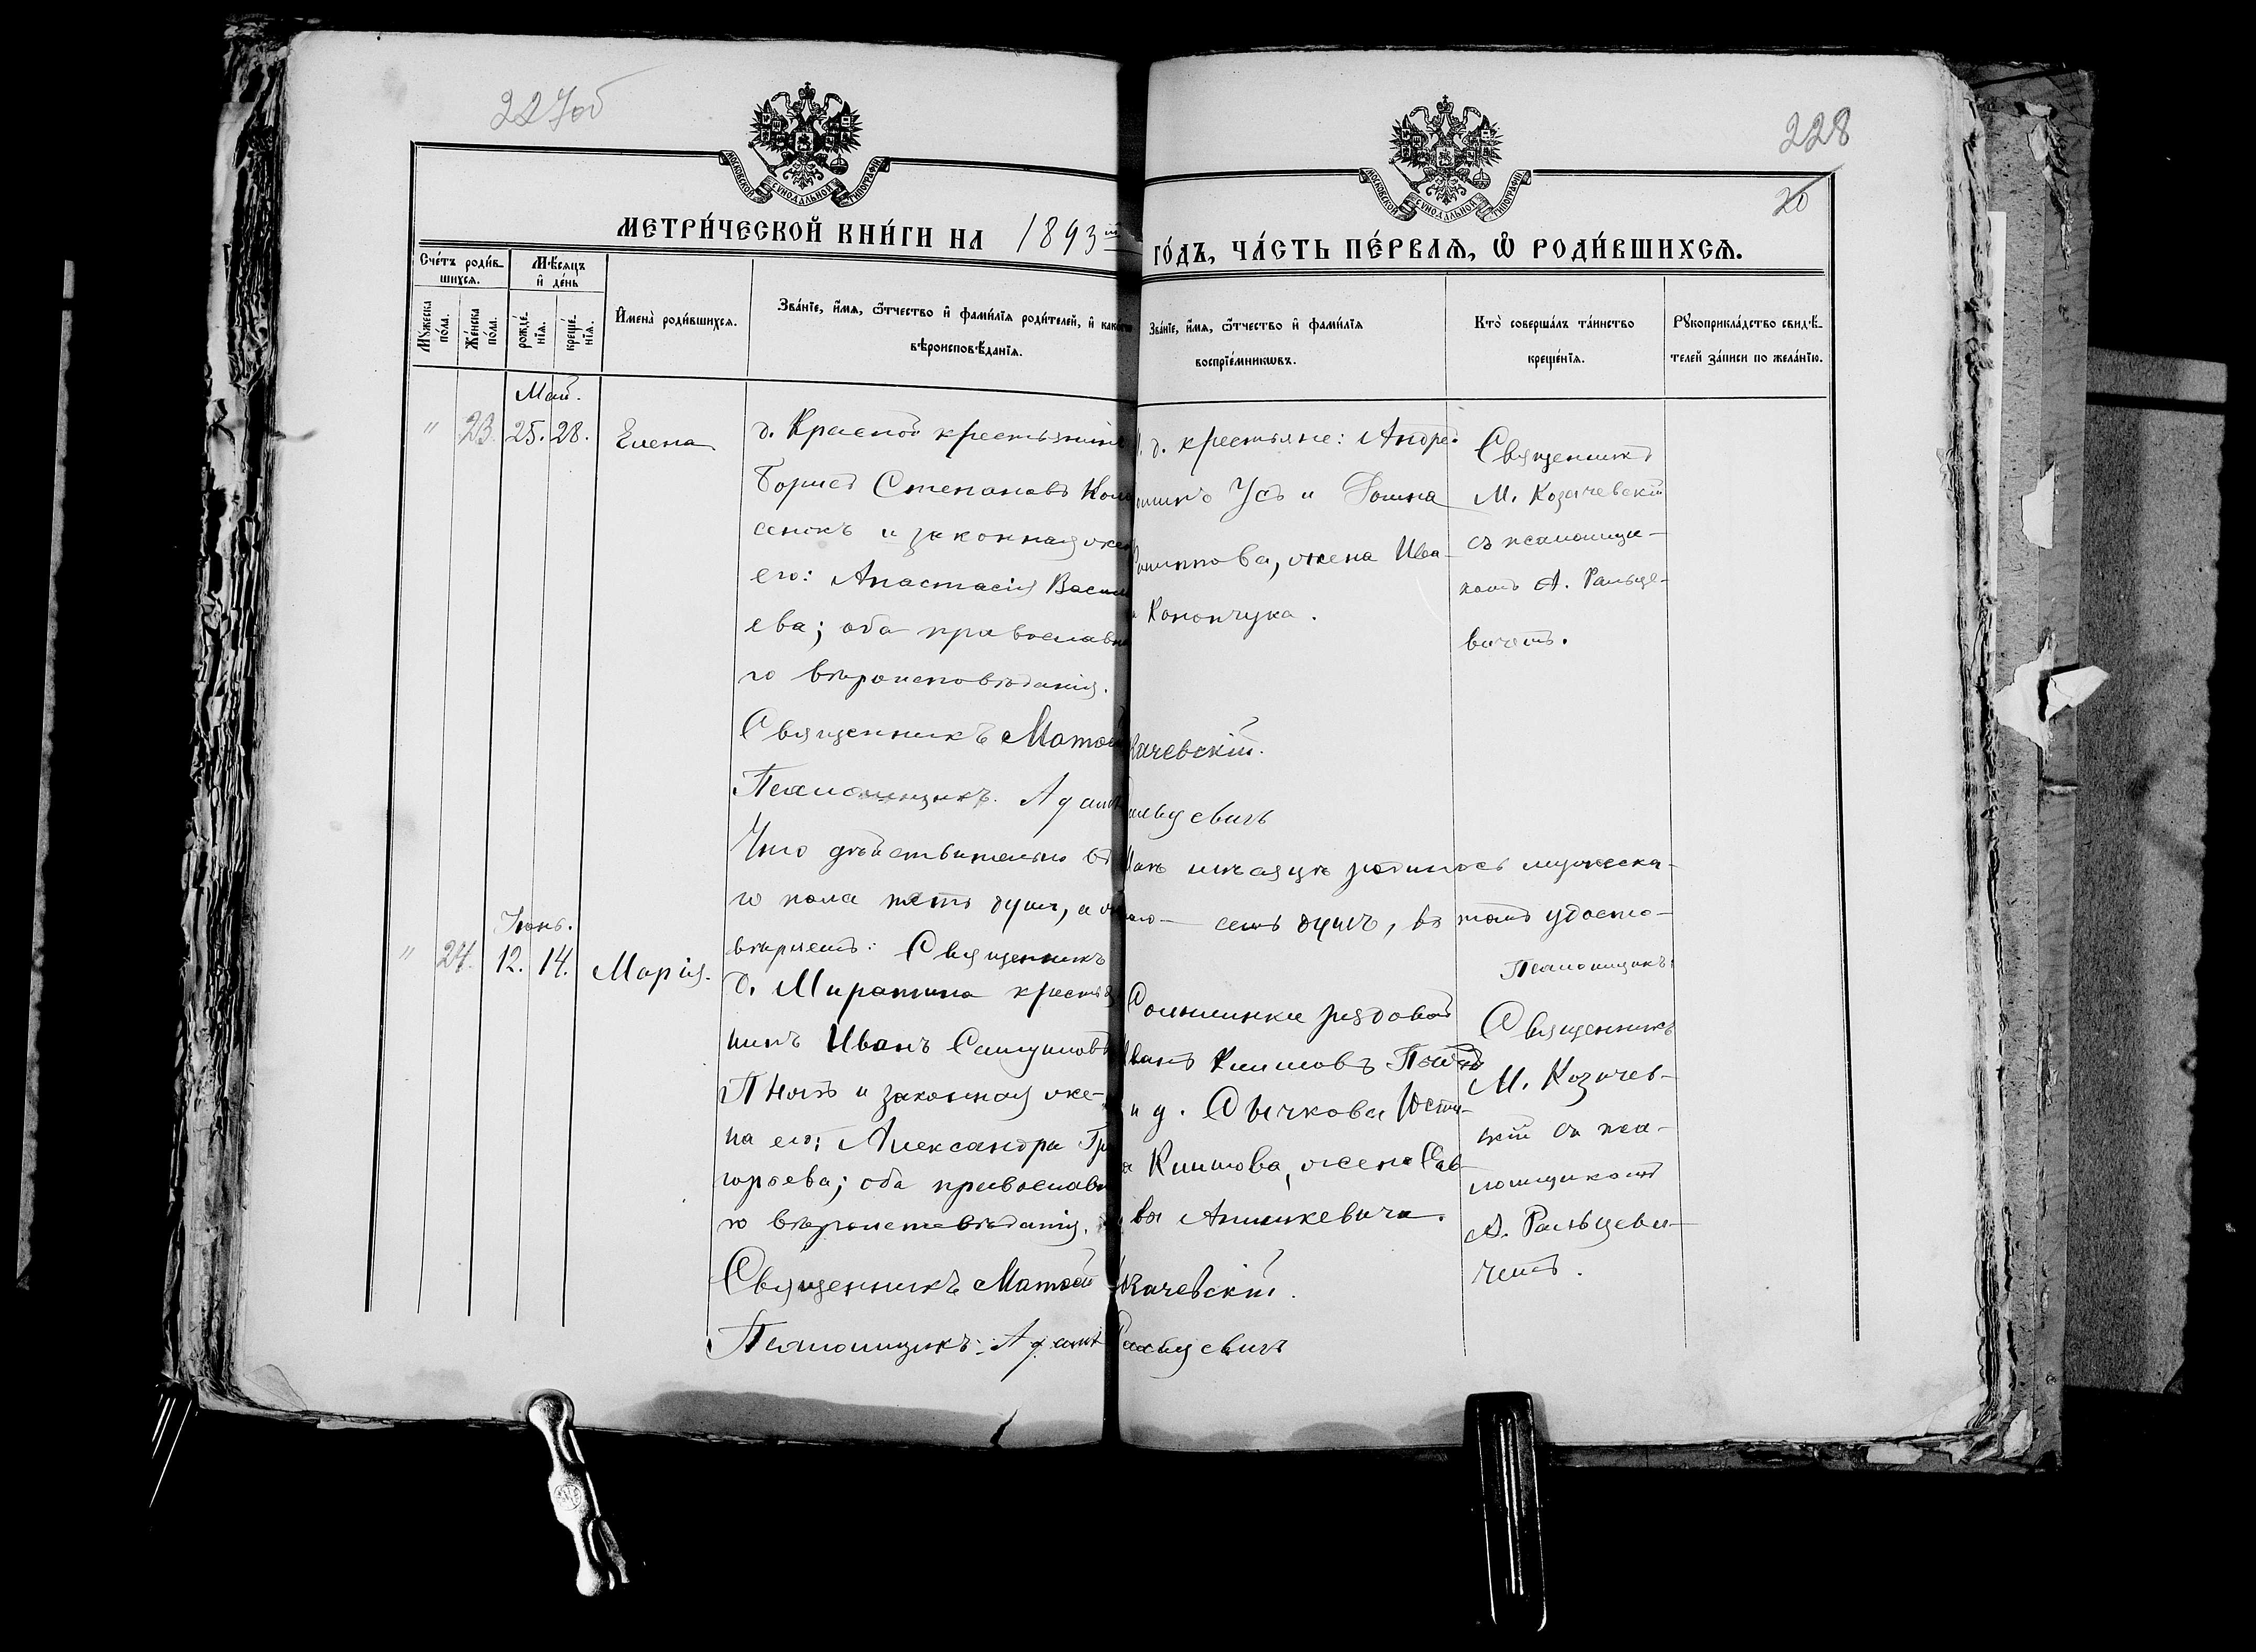 227об
228
20
МОСКОВСКОЙ СѴНОДАЛЬНОЙ ТИПОГРАФІИ
МОСКОВСКОЙ СѴНОДАЛЬНОЙ ТИПОГРАФІИ
МЕТРИ́ЧЕСКОЙ КНИ́ГИ НА 1893 й
ГО́ДЪ, ЧА́СТЬ ПЕ́РВАѦ, Ѡ҆ РОДИ́ВШИХСѦ.
Сче́тъ роди́в-
шихсѧ.
Мꙋ́жеска по́ла.
Же́нска по́ла.
Мѣ́сѧцъ и҆ де́нь
рожде́-нїѧ.
креще́-нїѧ.
И҆мена̀ роди́вшихсѧ.
Зва́нїе, и҆́мѧ, ѻ҆́тчество и҆ фами́лїѧ роди́телей, и҆ како́гѡ
вѣроисповѣ́данїѧ.
Зва́нїе, и҆́мѧ, ѻ҆́тчество и҆ фами́лїѧ
воспрїе́мникѡвъ.
Кто̀ соверша́лъ та́инство
креще́нїѧ.
Рꙋкоприкла́дство свидѣ́-
телей за́писи по жела́нїю.
Май.
" 23. 25. 28. Елена
д. Красной крестьянинъ
Борисъ Степановъ Коло
сенокъ и законная жен
его: Анастасія Васил
ева; оба православна
го вѣроисповѣданія.
д. крестьяне: Андрей
Усъ и
жена Ива-
Конончука.
Священникъ
М. Козачевскій
съ псаломщи-
комъ А. Ральце-
вичемъ.
Священникъ Матѳей Козачевскій.
Псаломщикъ Адамъ Ральцевичъ
Что дѣйствительно въ Маѣ мѣсяцѣ родилось мужеска-
го пола пять душъ, а семь душъ, въ томъ удосто-
вѣряетъ: Священникъ
Псаломщикъ:
Іюнь.
" 24. 12. 14. Марія.
д. Миратина крестья
нинъ Иванъ
и законная же-
на его: Александра Гри
горьева; оба православна
го вѣроисповѣданія.
рядовой
Иванъ Климовъ
и д. Сычкова Юсти-
на Климова, жена Сав-
вы
Священникъ
М. Козачев-
скій съ пса-
ломщикомъ
А. Ральцеви-
чемъ.
Священникъ Матѳей Козачевскій.
Псаломщикъ: Адамъ Ральцевичъ